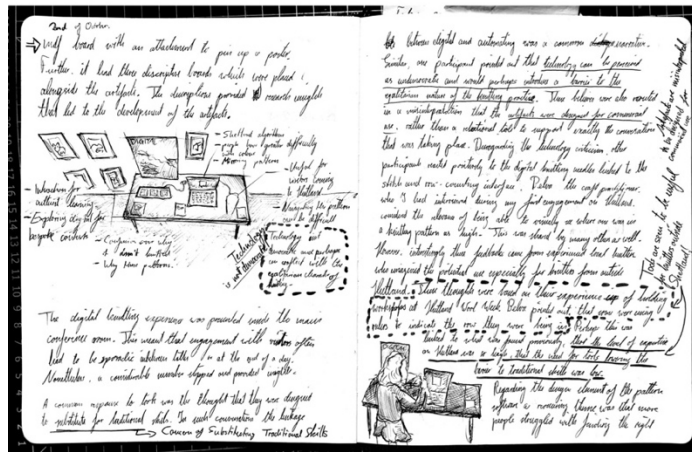 2nd of October.
⇒ mdf board with an attachment to pin up a poster.
Further, it had three descriptor boards which were placed
alongside the artefacts. The descriptions provided research insights
that led to the development of the artefacts.
DIGITAL
- Shetland algorithm
colour
- Mirroring patterns
- Useful for
visitors coming
to Shetland.
- Navigating the pattern
could be difficult
- Introduction for
cultural learning
- Exploring digital for
bespoke contexts
- Confusion over why
I don't knit
- Why these patterns.
Technology
is not democratic
Technology is not
democratic and perhaps
in conflict with the
egalitarian character of
knitting
The digital knitting experience was presented inside the main
conference room. This meant that engagement with visitors often
had to be sporadic inbetween talks or at the end of a day.
Nonetheless, a considerable number stopped and provided insights.
A common response to both was the thought that they were designed
to substitute for traditional skills. In such conversations the linkage
→ Concern of Substituting Traditional Skills
between digital and automating was a common
Similar, one participant pointed out that technology can be perceived
as undemocratic and would perhaps introduce a barrier to the
egalitarian nature of the knitting practice. These believes were also rooted
in a misinterpretation that the artefacts were designed for commercial
use, rather than a relational tool to support exactly the conversation
that was taking place. Disregarding the technology criticism other
participants reacted positively to the digital knitting needles linked to the
stitch and row-counting interface. the craft practitioner,
who I had interviewed during my first engagement in Shetland,
the of being able to visually see where one was in
a knitting pattern as high. This was shared by many others as well.
However, interestingly these feedbacks came from experienced local knitters
who recognised the potential use especially for knitters from outside
Shetland. These thoughts were based on their experience of holding
workshops at Shetland Wool Week. pointed out, that some were using
rulers to indicate the row they were being in. Perhaps this was
linked to what was found previously, that the level of expertise
in Shetland was so high, that the need for tools lowering the
barrier to traditional skills was low.
Regarding the design element of the pattern
software a remaining theme was that some
people struggled with finding the right
Artefacts are misinterpreted
to be
Tools are seen to be useful
for knitters outside
Shetland
DIGITAL